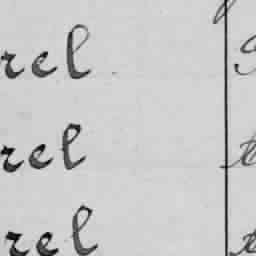 rel
rel
rel